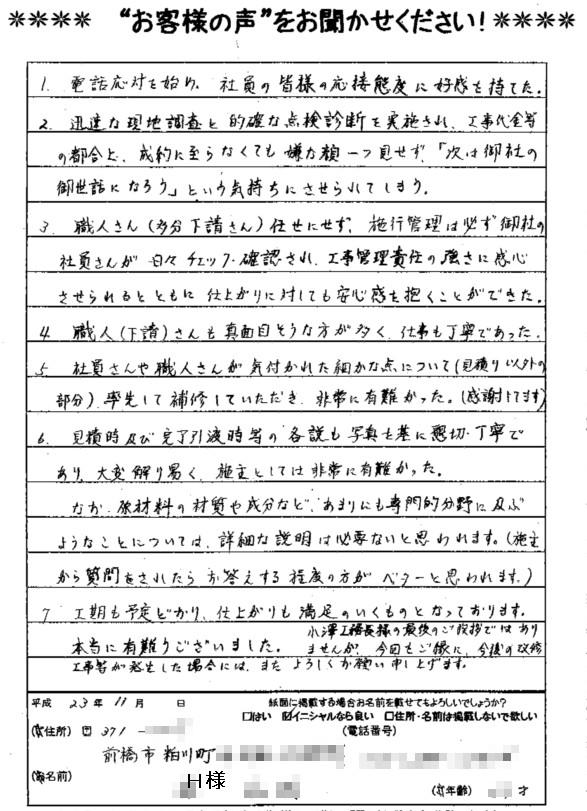 **** “お客様の声”をお聞かせください! ****
1. 電話応対を始め、社員の皆様の応接態度に好感を持てた。
2. 迅速な現地調査と的確な点検診断を実施され、工事代金等
の都合上、成約に至らなくても嫌な顔一つ見せず、「次は御社の
御世話になろう」という気持ちにさせられてしまう。
3. 職人さん(多分下請さん)任せにせず、施行管理は必ず御社の
社員さんが日々チェック・確認され、工事管理責任の強さに感心
させられるとともに仕上がりに対しても安心感を抱くことができた。
4. 職人(下請)さんも真面目そうな方が多く、仕事も丁寧であった。
5. 社員さんや職人さんが気付かれた細かな点について(見積り以外の
部分)率先して補修していただき、非常に有難かった。(感謝してます)
6. 見積時及び完了引渡時等の各説も写真を基に懇切・丁寧で
あり、大変解り易く、施主としては非常に有難かった。
なお、原材料の材質や成分など、あまりにも専門的分野に及ぶ
ようなことについては、詳細な説明は必要ないと思われます。(施主
から質問をされたらお答えする程度の方がベターと思われます。)
7. 工期も予定どおり、仕上がりも満足のいくものとなっております。
本当に有難うございました。
小澤工務長様の最後のご挨拶ではあり
ませんが、今回もご縁に、今後の改修
工事等が発生した場合には、またよろしくお願い申し上げます。
平成 23年 11月 日
紙面に掲載する場合お名前を載せてもよろしいでしょうか?
□はい ☑イニシャルなら良い □住所・名前は掲載しないで欲しい
(ご住所) 〒 371-
(電話番号)
前橋市粕川町
(お名前)
H様
(ご年齢) 才